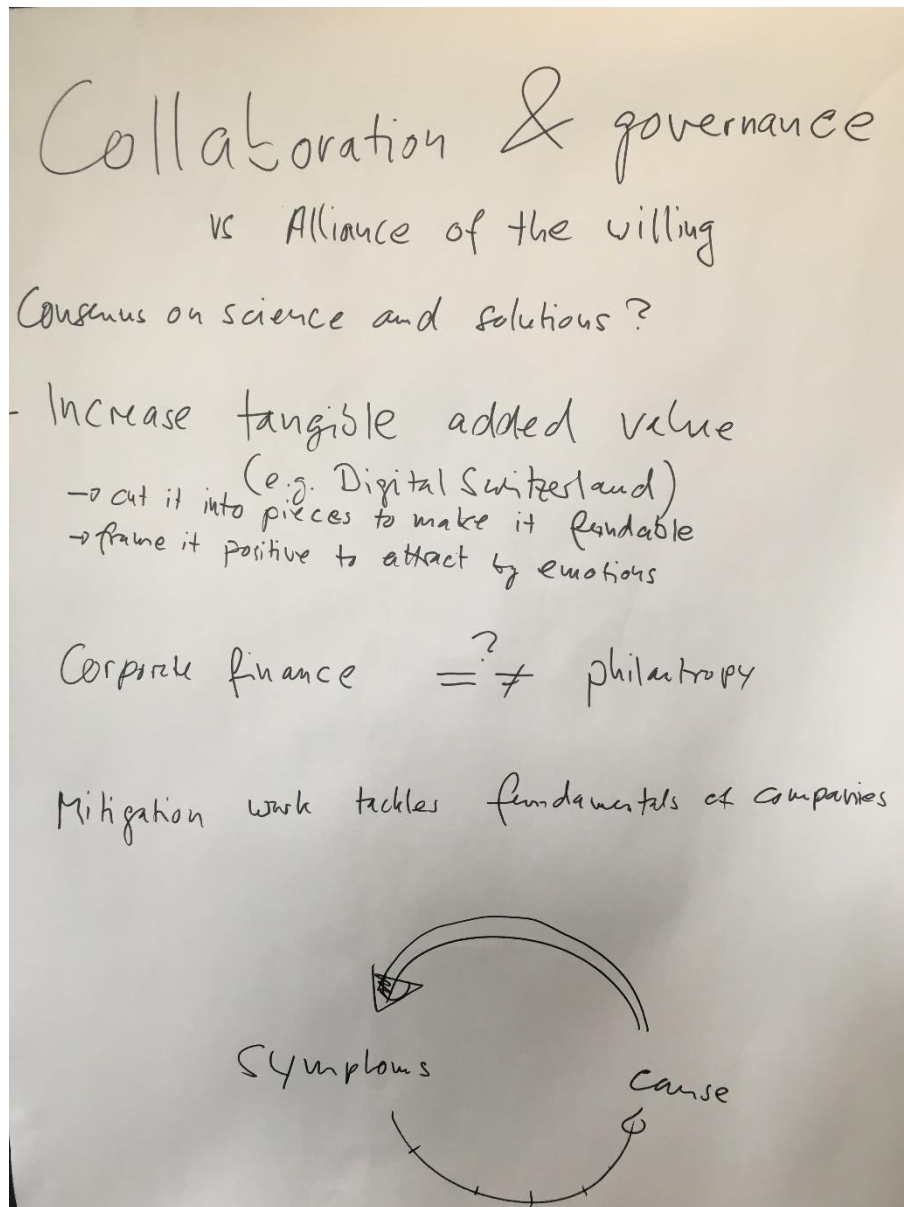 Collaboration & governance
vs Alliance of the willing
Consenus on science and solutions?
- Increase tangible added value
(e.g. Digital Switzerland)
→ cut it into pieces to make it fundable
→ frame it positive to attract by emotions
Corporate finance =?≠ philantropy
Mitigation work tackles fundamentals of companies
Symptoms
cause